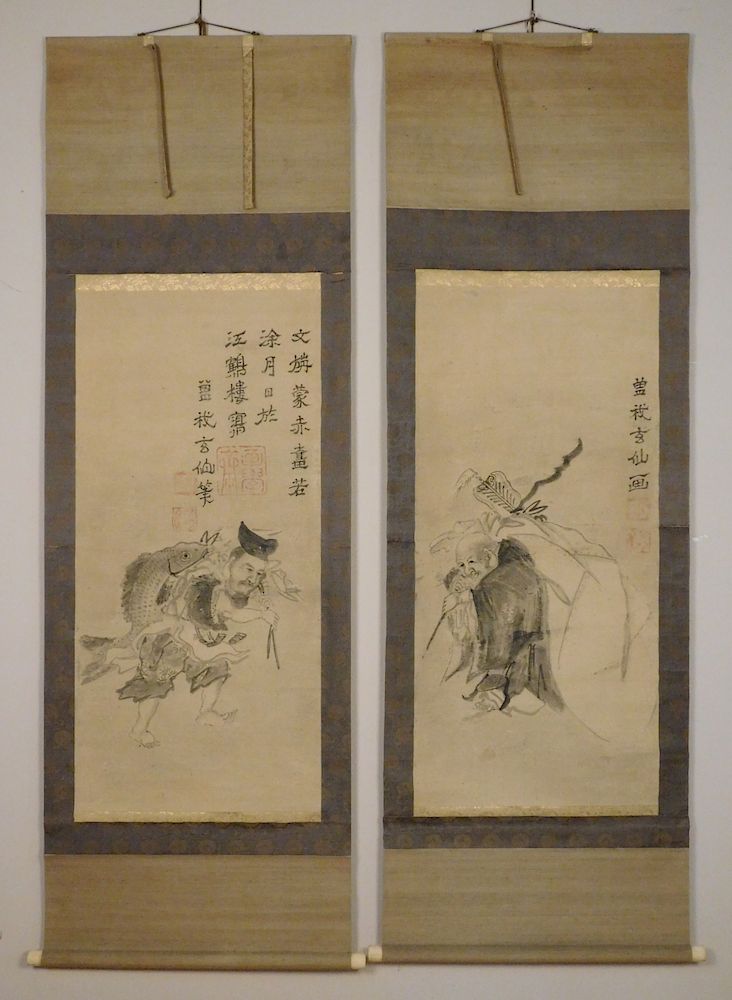 文旃蒙赤奮若
涂月日於
江鶴樓寫
曽我玄仙筆
曽我玄仙画